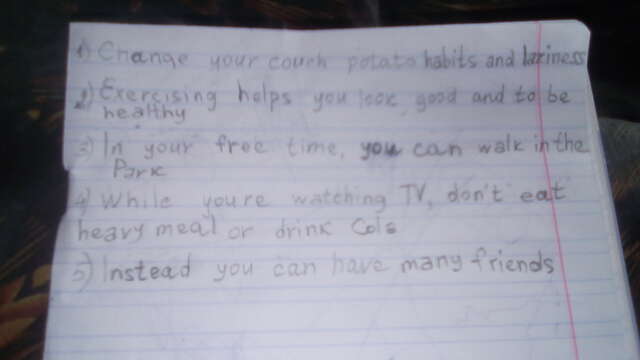 1) Change your couch potato habits and laziness
2) Exercising helps you look good and to be
healthy
3) In your free time, you can walk in the
Park
4) While youre watching TV, don't eat
heavy meal or drink Cola
5) Instead you can have many friends